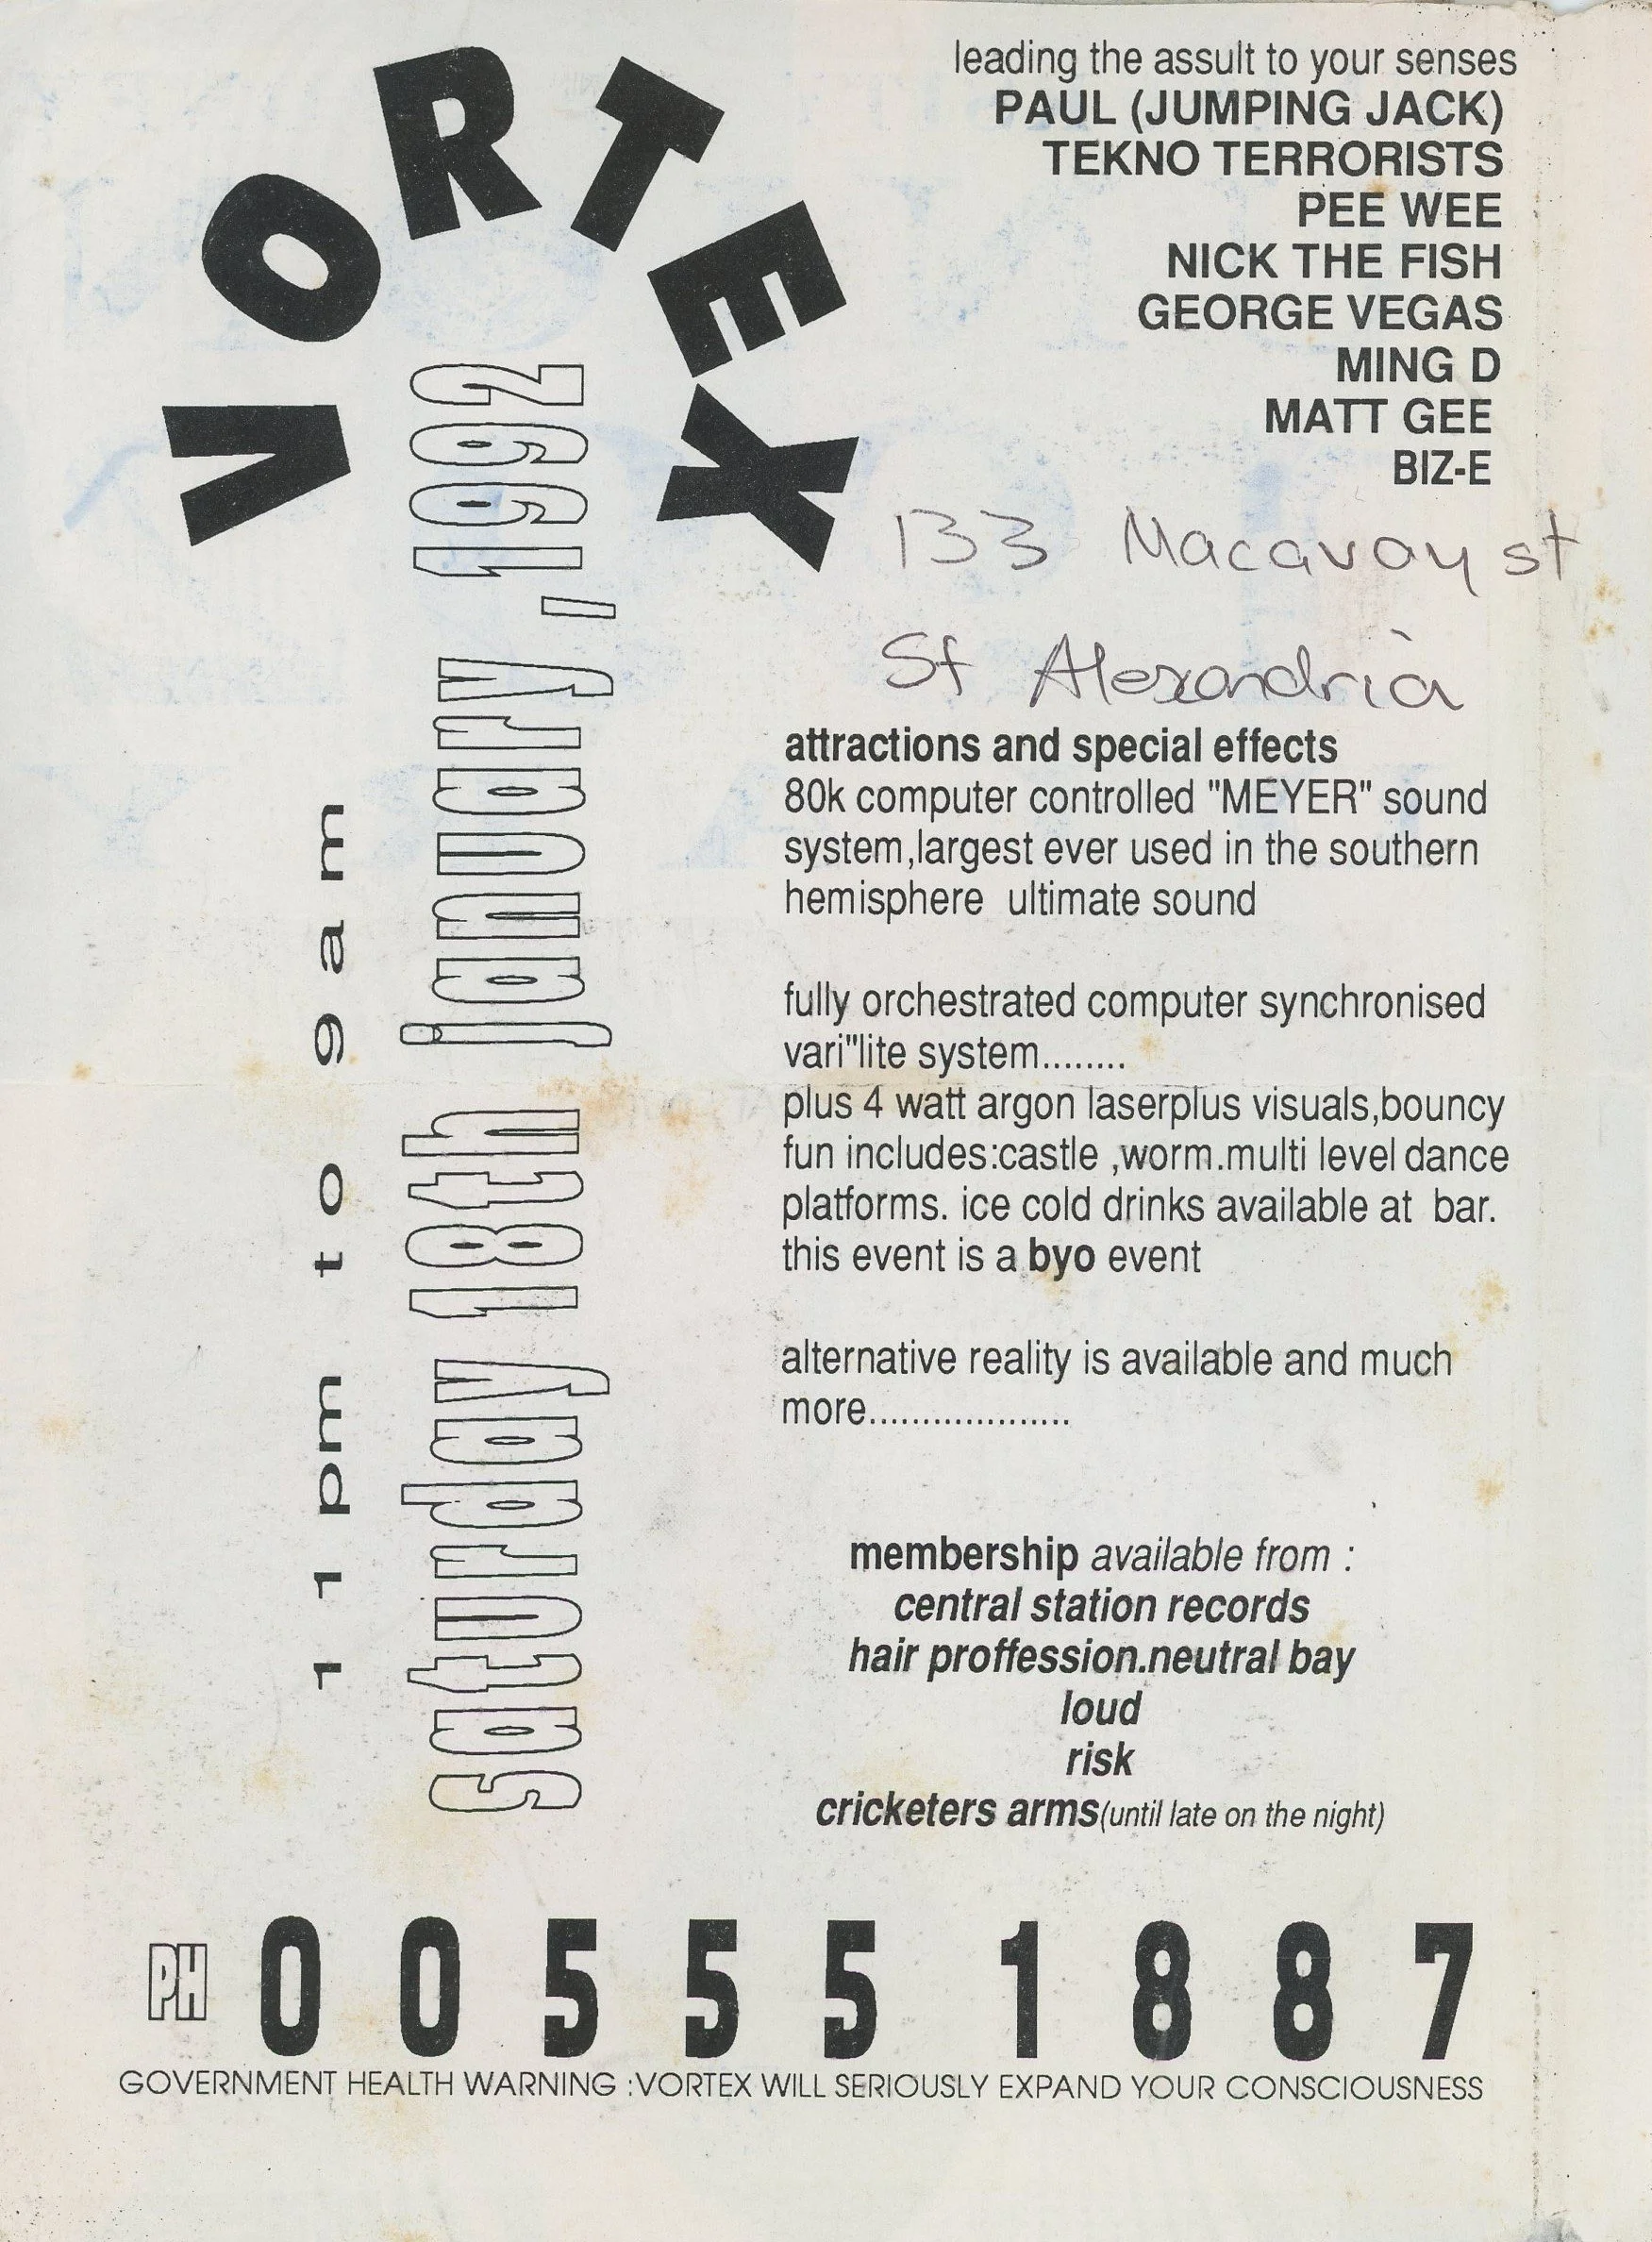 VORTEX
leading the assult to your senses
PAUL (JUMPING JACK)
TEKNO TERRORISTS
PEE WEE
NICK THE FISH
GEORGE VEGAS
MING D
MATT GEE
BIZ-E
133 Macavoy st
St Alexandria
11pm to 9am
saturday 18th january, 1992
attractions and special effects
80k computer controlled "MEYER" sound
system,largest ever used in the southern
hemisphere ultimate sound
fully orchestrated computer synchronised
vari"lite system........
plus 4 watt argon laserplus visuals,bouncy
fun includes:castle ,worm.multi level dance
platforms. ice cold drinks available at bar.
this event is a byo event
alternative reality is available and much
more...................
membership available from :
central station records
hair proffession.neutral bay
loud
risk
cricketers arms(until late on the night)
PH 00555 1887
GOVERNMENT HEALTH WARNING :VORTEX WILL SERIOUSLY EXPAND YOUR CONSCIOUSNESS